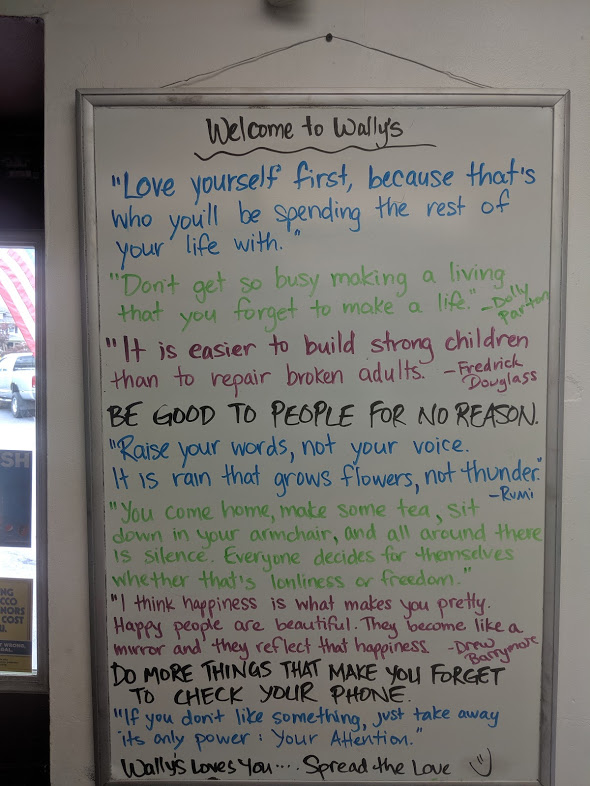 Welcome to Wally's
"Love yourself first, because that's
who you'll be spending the rest of
your life with."
"Don't get so busy making a living
that you forget to make a life." -Dolly
Parton
"It is easier to build strong children
than to repair broken adults. -Fredrick
Douglass
BE GOOD TO PEOPLE FOR NO REASON.
"Raise your words, not your voice.
It is rain that grows flowers, not thunder."
-Rumi
"You come home, make some tea, sit
down in your armchair, and all around there
is silence. Everyone decides for themselves
whether that's lonliness or freedom."
"I think happiness is what makes you pretty.
Happy people are beautiful. They become like a
mirror and they reflect that happiness -Drew
Barrymore
DO MORE THINGS THAT MAKE YOU FORGET
TO CHECK YOUR PHONE.
"If you don't like something, just take away
its only power: Your Attention."
Wally's Loves You.... Spread the Love
SH
NG
CCO
NORS
COST
U.